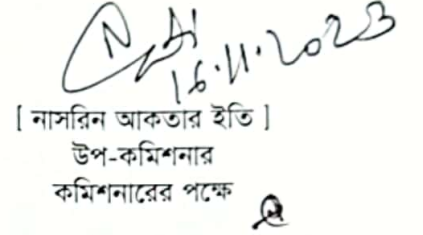 16.11.2023
[ নাসরিন আকতার ইতি ]
উপ-কমিশনার
কমিশনারের পক্ষে